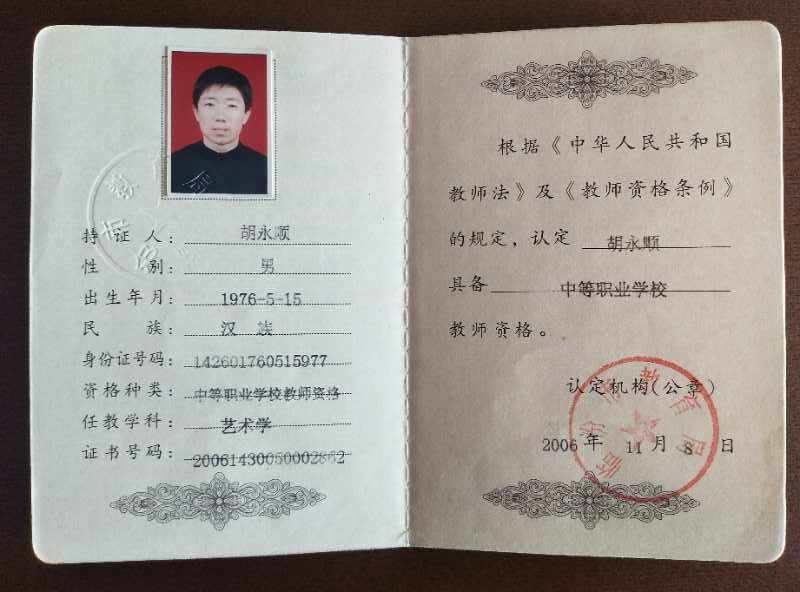 持证人： 胡永顺
性别： 男
出生年月： 1976-5-15
民族： 汉 族
身份证号码： 142601760515977
资格种类： 中等职业学校教师资格
任教学科： 艺术学
证书号码： 20061430050002862
根据《中华人民共和国
教师法》及《教师资格条例》
的规定，认定 胡永顺
具备 中等职业学校
教师资格。
认定机构(公章)
2006 年 11 月 8 日
临汾市教育局